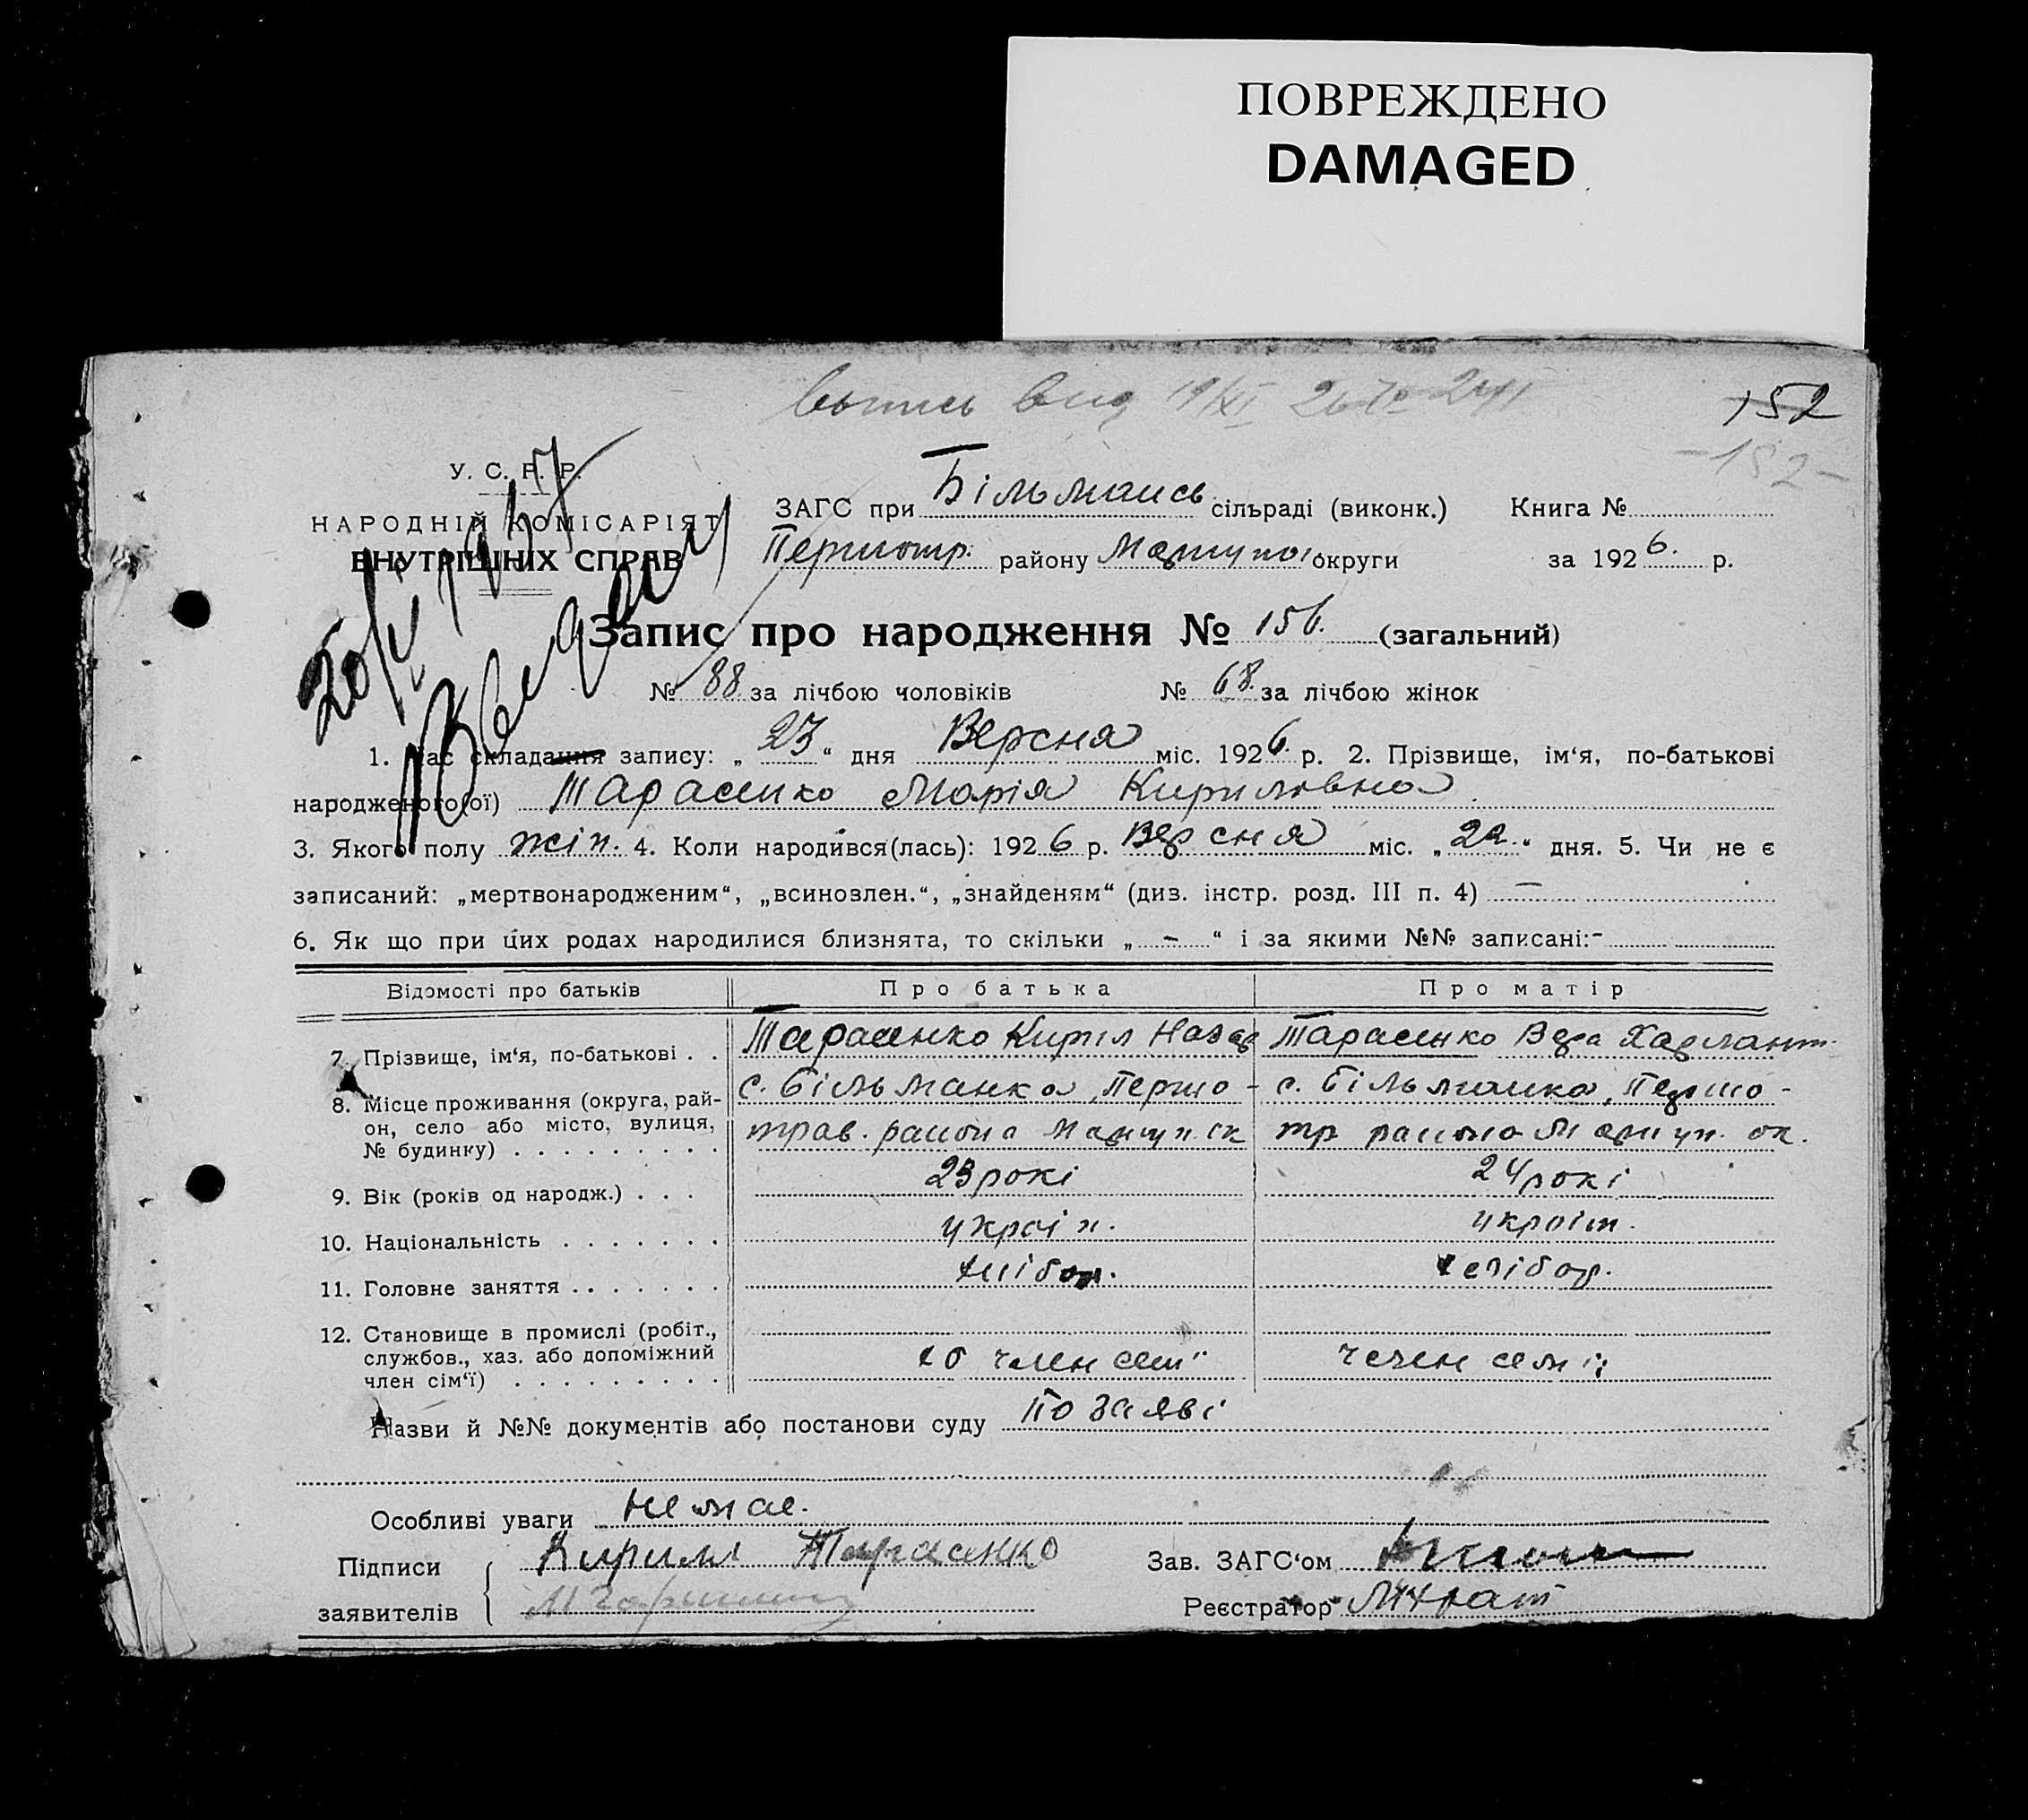 ПОВРЕЖДЕНО
DAMAGED
152
-152-
У. С. Р. Р.
НАРОДНІЙ КОМІСАРІЯТ
ВНУТРІШНІХ СПРАВ
ЗАГС при Більмансь сільраді (виконк.) Книга №
Першотр. району Маріупол. округи за 1926. р.
Запис про народження № 156. (загальний)
№ 88 за лічбою чоловіків № 68. за лічбою жінок
1. Час складання запису: „ 23 “ дня Версня міс. 1926. р. 2. Прізвище, ім‘я, по-батькові
народженого(ої) Тарасенко Марія Кириловна
3. Якого полу жін. 4. Коли народився(лась): 1926 р. Версня міс. „ 22. “ дня. 5. Чи не є
записаний: „мертвонародженим“, „всиновлен.“, „знайденям“ (див. інстр. розд. III п. 4) —
6. Як що при цих родах народилися близнята, то скільки „ - “ і за якими №№ записані:-
Відомості про батьків Про батька Про матір
7. Прізвище, ім‘я, по-батькові . . Тарасенко Кирил Назар Тарасенко Вера Харлант.
8. Місце проживання (округа, рай- с. Більманка, Першо- с. Більманка, Першо-
он, село або місто, вулиця, трав. района Мариуп. ок тр района Мариуп. ок.
№ будинку) . . . . . . . . .
9. Вік (років од народж.) . . . 23 рокі 24 рокі
10. Національність . . . . . . . україн. україн.
11. Головне заняття . . . . . . . хлібор. хлібор.
12. Становище в промислі (робіт.,
службов., хаз. або допоміжний член семї член семїі
член сім‘ї) . . . . . . . . .
Назви й №№ документів або постанови суду по заяві
Особливі уваги немае.
Підписи Кирилл Тарасенко Зав. ЗАГС‘ом
заявителів Реєстратор